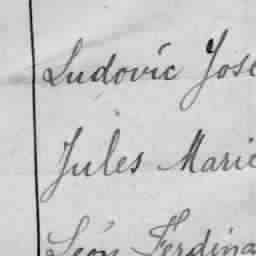 Ludovic Jose
Jules Marie
Léon Ferdina